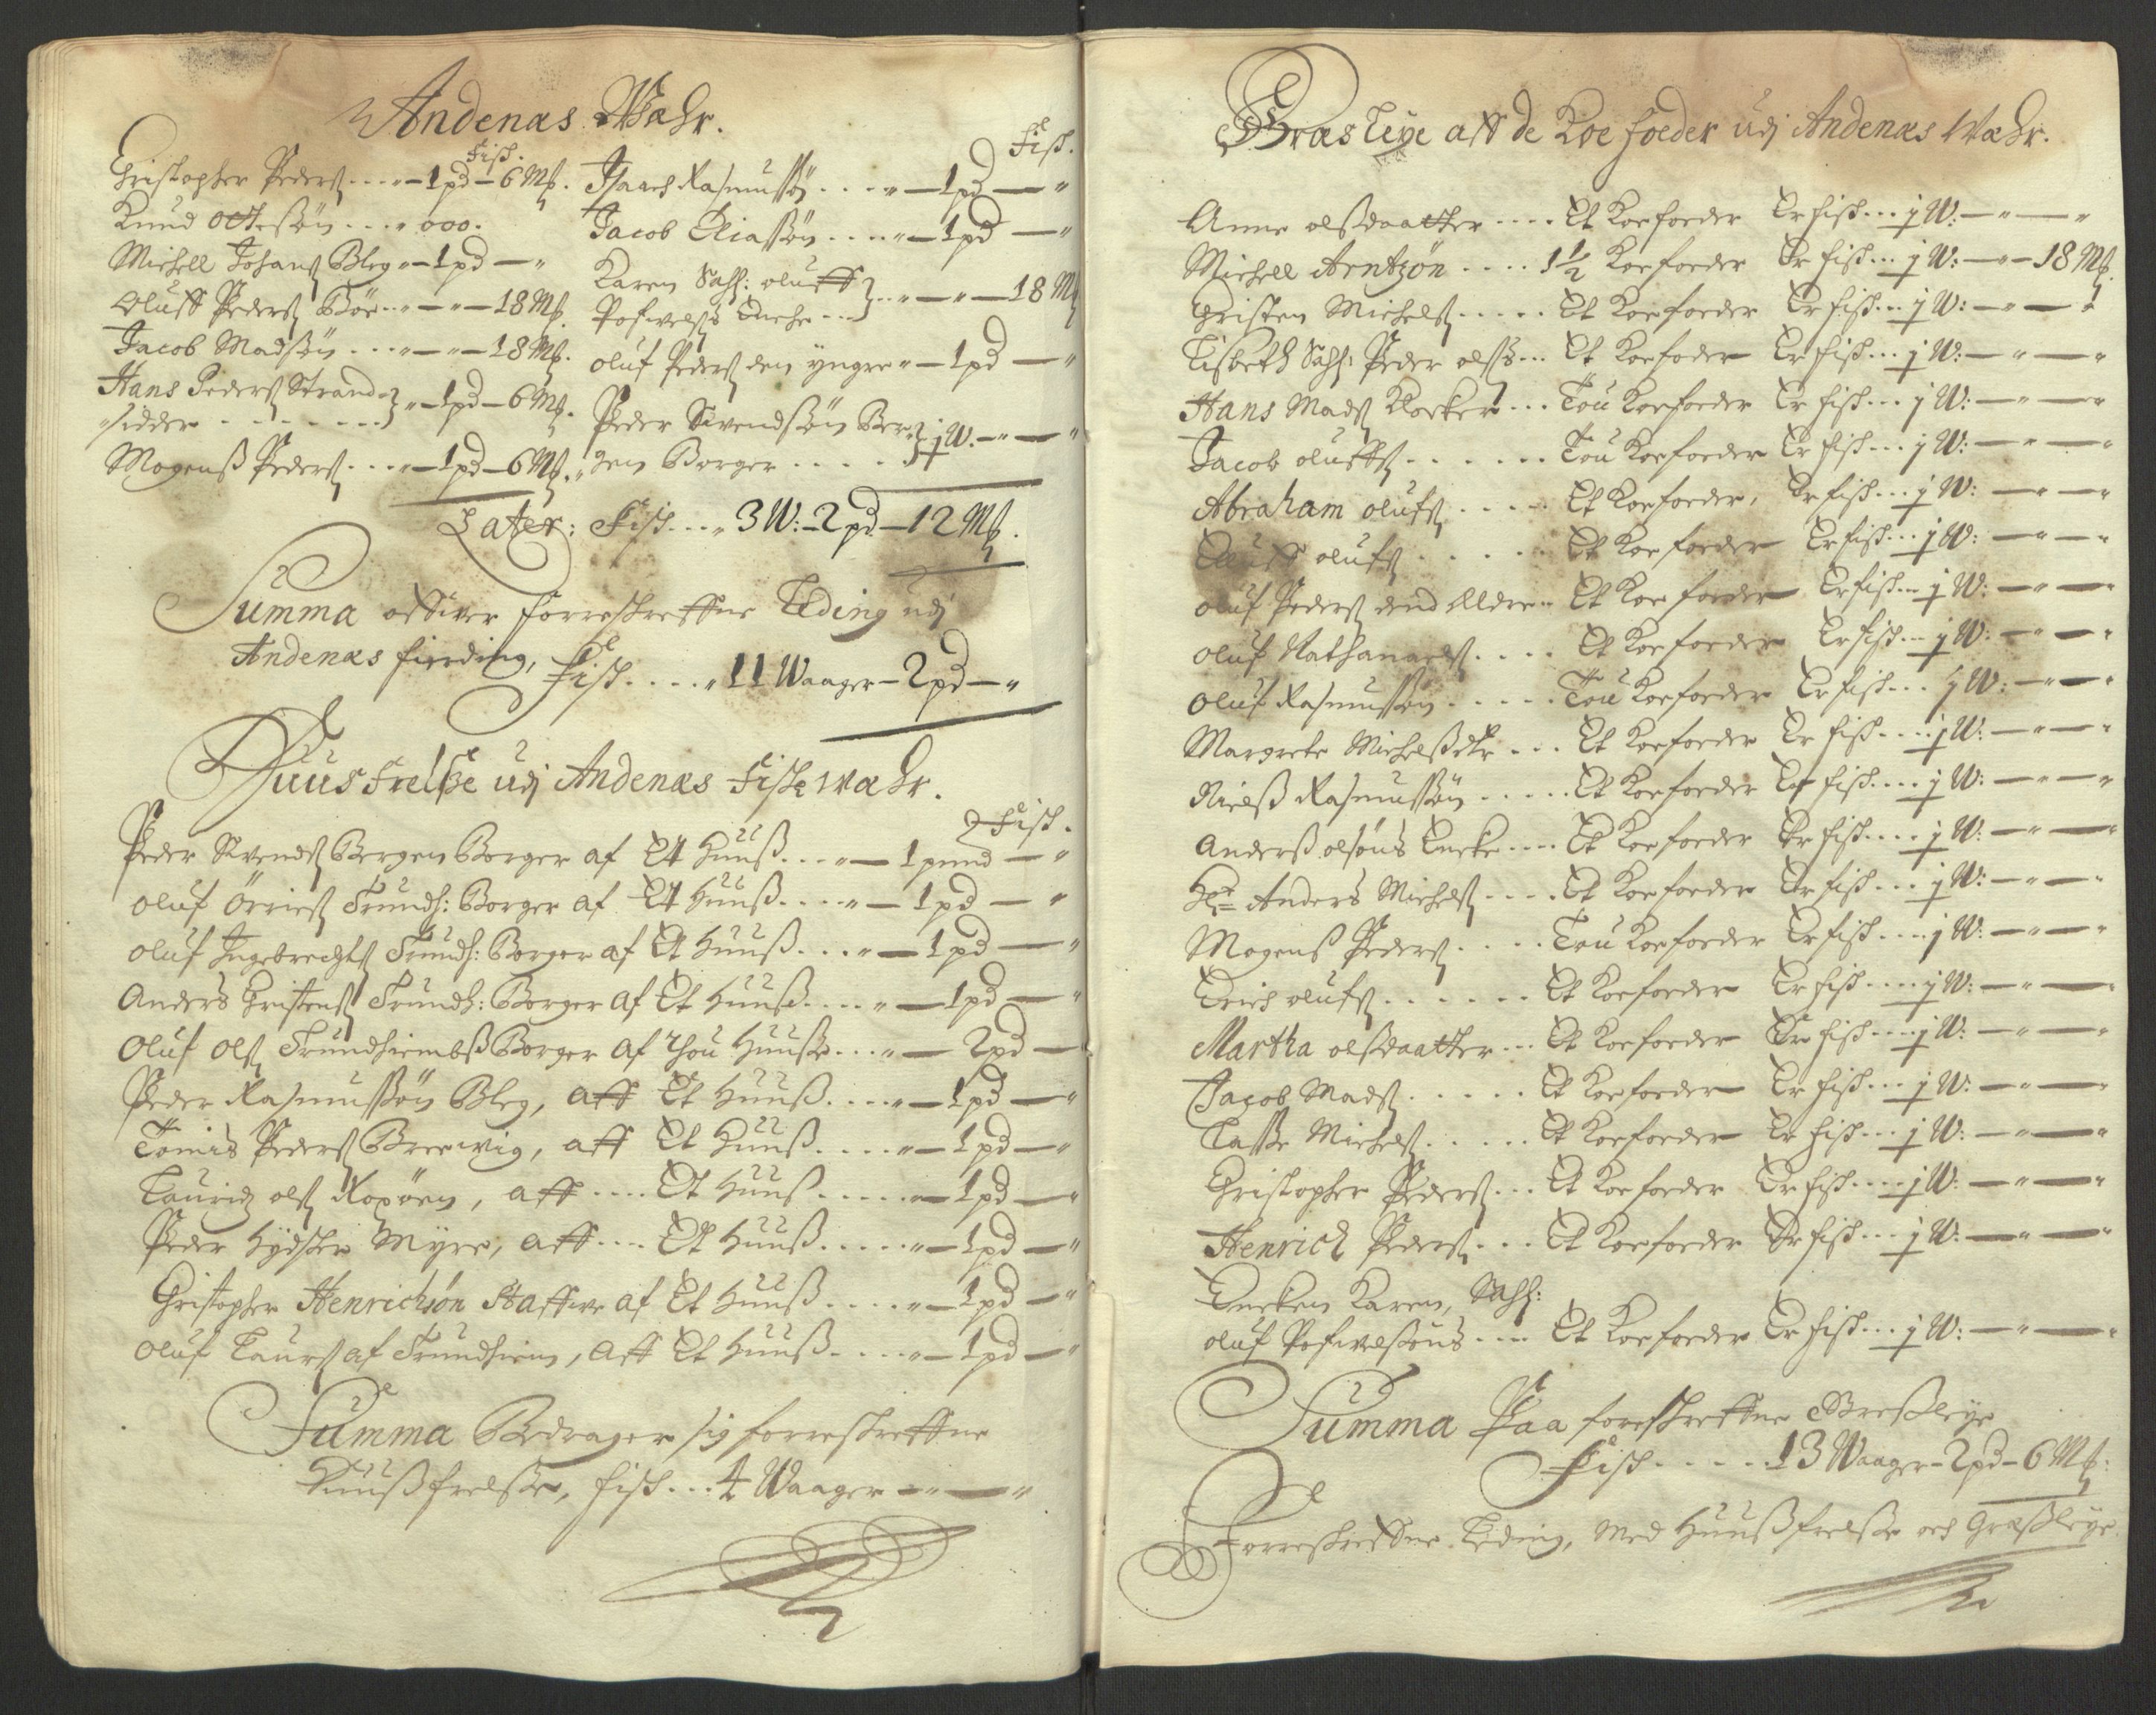 Andenæs Wæhr.
Fisk.
Christopher Peders. . . . „ — 1 pd — 6 Mk.
Knud Ottesøn . . . „ ooo.
Michell Johans. Bleg „ — 1 pd — „
Oluff Peders. Böe . . „ — „ — 18 Mk.
Jacob Madsøn . . . „ — „ — 18 Mk.
Hans Peders. Strand-
sidder . . . . . . . } „ — 1 pd — 6 Mk.
Mogenß Peders. . . . „ — 1 pd — 6 Mk.
Fisk.
Isaach Rasmussøn . . . . „ — 1 pd — „
Jacob Eliassøn . . . . „ — 1 pd — „
Karen Sahl: oluff
Pofvelss Encke . . . } . . „ — „ — 18 Mk
oluf Peders. den yngre „ — 1 pd — „
Peder Svendsøn Ber-
gen Borger . . . . . } j W. — „ — „
Later: Fisk . . . „ 3 W: — 2 pd — 12 Mk.
Summa ofver forreskreffne Leding udj
Andenæs fierding, Fisk . . . . „ 11 Waager — 2 pd — „
Huusfrelsse udj Andenæs Fiskewæhr.
Fisk.
Peder Svends. Bergen Borger af Et Huuß . . . „ — 1 pund — „
oluf Örries. Trundh: Borger af Et Huuß . . . . „ — 1 pd — „
oluf Ingebrechts. Trundh: Borger af Et Huuß . . . „ — 1 pd — „
Anders Christens. Trundh: Borger af Et Huuß . . . . „ — 1 pd — „
Oluf Ols. Trundhiembß Borger af thou Huusse . . . „ — 2 pd —
Peder Rasmussøn Bleg, aff Et Huuß . . . . „ — 1 pd — „
Tomis Peders. Breevig, aff Et Huuß . . . . „ — 1 pd — „
Lauridz ols. Roxöen, aff . . . . Et Huuß . . . . . „ — 1 pd — „
Peder Myre, aff . . . . Et Huuß . . . . . „ — 1 pd — „
Christopher Henrichsøn Staffwe af Et Huuß . . . . „ — 1 pd — „
oluf Laurs. af Trundhiem, aff Et Huuß . . . . „ — 1 pd — „
Summa Bedrager sig forreskreffne
Huußfrelsse, fisk . . . 4 Waager — „ — „
Græsleye aff de Koe foeder udj Andenæs Wæhr.
Anne olsdaatter . . . . Et Koefoeder Er fisk . . . j W: — „ — „
Michell Arntzøn . . . . 1½ Koefoeder Er fisk . . . j W: — „ — 18 Mk.
Christen Michels. . . . . . Et Koefoeder Er fisk . . . j W: — „ — „
Lisbeth Sahl: Peder olss . . . Et Koefoder Er fisk . . . j W: — „ — „
Hans Mads. Klocker . . . Tou Koefoeder Er fisk . . . j W: — „ — „
Jacob oluffs. . . . . . . . Tou Koefoeder Er fisk . . . j W: — „ — „
Abraham olufs. . . . . . Et Koefoeder, Er fisk . . . j W: — „ — „
olufs. . . . . . Et Koefoeder Er fisk . . . j W: — „ — „
oluf Peders. dend Eldre „ Et Koe foeder Er fisk . . . j W: — „ — „
oluf Nathanaels. . . . . Et Koefoeder Er fisk . . . j W: — „ — „
oluf Rasmussøn . . . . . Tou Koefoeder Er fisk . . . j W: — „ — „
Margrete Michelßdtr . . . Et Koefoeder Er fisk . . . . j W: — „ — „
Nielß Rasmussøn . . . . . Et Koefoeder Er fisk . . . . j W: — „ — „
Anderß olsøns Encke . . . . Et Koefoeder Er fisk . . . . j W: — „ — „
Hr. Anders Michels. . . . . Et Koefoeder Er fisk . . . j W: — „ — „
Mogenß Peders. . . . . Tou Koefoeder Er fisk . . . . j W: — „ — „
Erich olufs. . . . . . . Et Koefoeder Er fisk . . . . j W: — „ — „
Martha olsdaatter . . . Et Koefoeder Er fisk . . . . j W: — „ — „
Jacob Mads. . . . . . Et Koefoeder Er fisk . . . j W: — „ — „
Lasse Michels. . . . . . Et Koefoeder Er fisk . . . j W: — „ — „
Christopher Peders. . . . Et Koe foeder Er fisk . . . . j W: — „ — „
Henrich Peders. . . . Et Koefoeder Er fisk . . . j W: — „ — „
Encken Karen, Sahl:
oluf Pofvelsøns . . . . Et Koefoeder Er fisk . . . j W: — „ — „
Summa Paa foreskreffne Græßleye
Fisk . . . . . 13 Waager — 2 pd — 6 Mk:
Forreskreffne Leding, Med Huußfrelsse och Græßleye